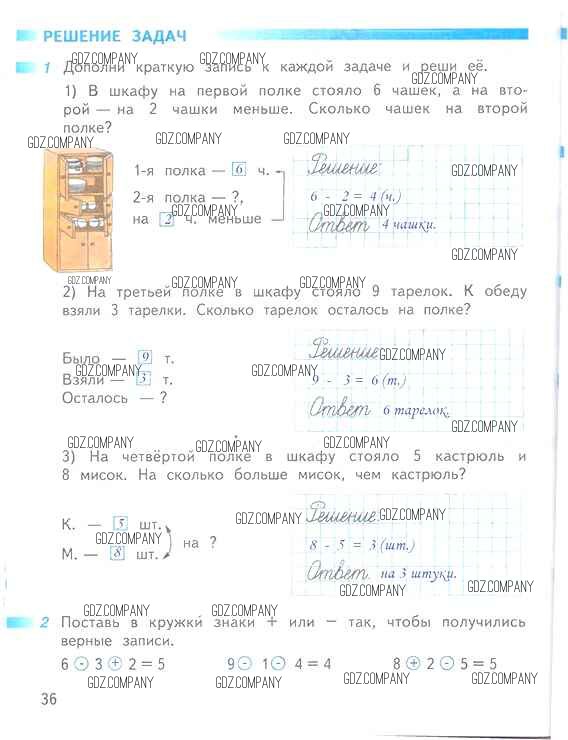 РЕШЕНИЕ ЗАДАЧ
GDZ.COMPANY GDZ.COMPANY
1 Дополни краткую запись к каждой задаче и реши её.
GDZ.COMPANY
1) В шкафу на первой полке стояло 6 чашек, а на вто-
рой — на 2 чашки меньше. Сколько чашек на второй
полке?
GDZ.COMPANY GDZ.COMPANY GDZ.COMPANY
1-я полка — 6 ч.
2-я полка — ?,
на 2 ч. меньше
GDZ.COMPANY
Решение:
GDZ.COMPANY
6 - 2 = 4 (ч.)
GDZ.COMPANY
Ответ 4 чашки.
GDZ.COMPANY
GDZ.COMPANY GDZ.COMPANY GDZ.COMPANY GDZ.COMPANY
2) На третьей полке в шкафу стояло 9 тарелок. К обеду
взяли 3 тарелки. Сколько тарелок осталось на полке?
Было — 9 т.
GDZ.COMPANY
Взяли — 3 т.
Осталось — ?
Решение:
GDZ.COMPANY
GDZ.COMPANY
9 - 3 = 6 (т.)
Ответ 6 тарелок.
GDZ.COMPANY
GDZ.COMPANY GDZ.COMPANY GDZ.COMPANY
3) На четвёртой полке в шкафу стояло 5 кастрюль и
8 мисок. На сколько больше мисок, чем кастрюль?
К. — 5 шт.
GDZ.COMPANY
на ?
М. — 8 шт.
GDZ.COMPANY
Решение:
GDZ.COMPANY
8 - 5 = 3 (шт.)
Ответ на 3 штуки.
GDZ.COMPANY GDZ.COMPANY
GDZ.COMPANY GDZ.COMPANY GDZ.COMPANY GDZ.COMPANY
2 Поставь в кружки знаки + или − так, чтобы получились
верные записи.
6 - 3 + 2 = 5 9 - 1 - 4 = 4 8 + 2 - 5 = 5
GDZ.COMPANY GDZ.COMPANY GDZ.COMPANY GDZ.COMPANY
36